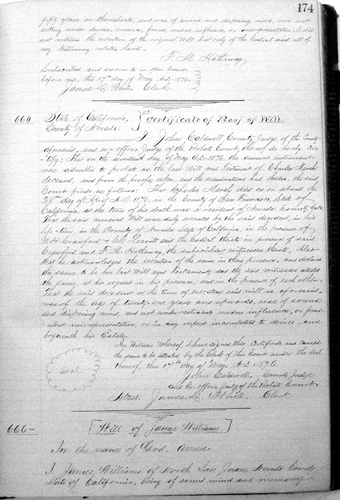 174
fifty years or thereabouts, and was of sound and disposing mind, and not
acting under duress, menace, fraud, undue influence or misrepresentation. I did
not witness the execution of the original Will, but only of the Codicil and all of
my testimony relates thereto.
F. M. Hathaway
Subscribed and sworn to in Open Court
before me, this 17th day of May A.D. 1876.
James D. White Clerk
666 State of California,
County of Nevada.
Certificate of Proof of Will
I, John Caldwell County Judge of the County
aforesaid, and ex officio Judge of the Probate Court, thereof do hereby Cer-
tify: That on the seventeenth day of May A.D. 1876, the annexed instrument
was admitted to probate as the last Will and Testament of Charles Marsh
deceased, and from the proofs taken and the examinations had therein the said
Court finds as follows: That Charles Marsh died on or about the
28th day of April A.D. 1876, in the County of San Francisco, State of
California, at the time of his death was a resident of Nevada County, Cal.
That the said annexed Will was duly executed by the said decedent, in his
life time, in the County of Nevada State of California, in the presence of
Crawford and
Crawford and F. M. Hathaway, the subscribing witnesses thereto. Also
that he acknowledged the execution of the same in their presence, and declared
the same to be his last Will and Testament, and the said witnesses attested
the same, at his request in his presence, and in the presence of each other.
That the said decedent at the time of executing said will as aforesaid,
was of the age of twenty-one years and upwards, was of sound
and disposing mind, and not under restraint, undue influence, or fraud-
ulent misrepresentation, or in any respect incompetent to devise, and
bequeath his Estate.
In Witness Whereof, I have signed this Certificate and caused
the same to be attested by the Clerk of this Court under the Seal
thereof, this 17th day of May A.D. 1876.
Seal
John Caldwell, County Judge
and Ex officio Judge of the Probate Court
Attest. James D. White Clerk
666- Will of James Williams
In the name of God. Amen.
I, James Williams of North San Juan Nevada County
State of California, being of sound mind and memory